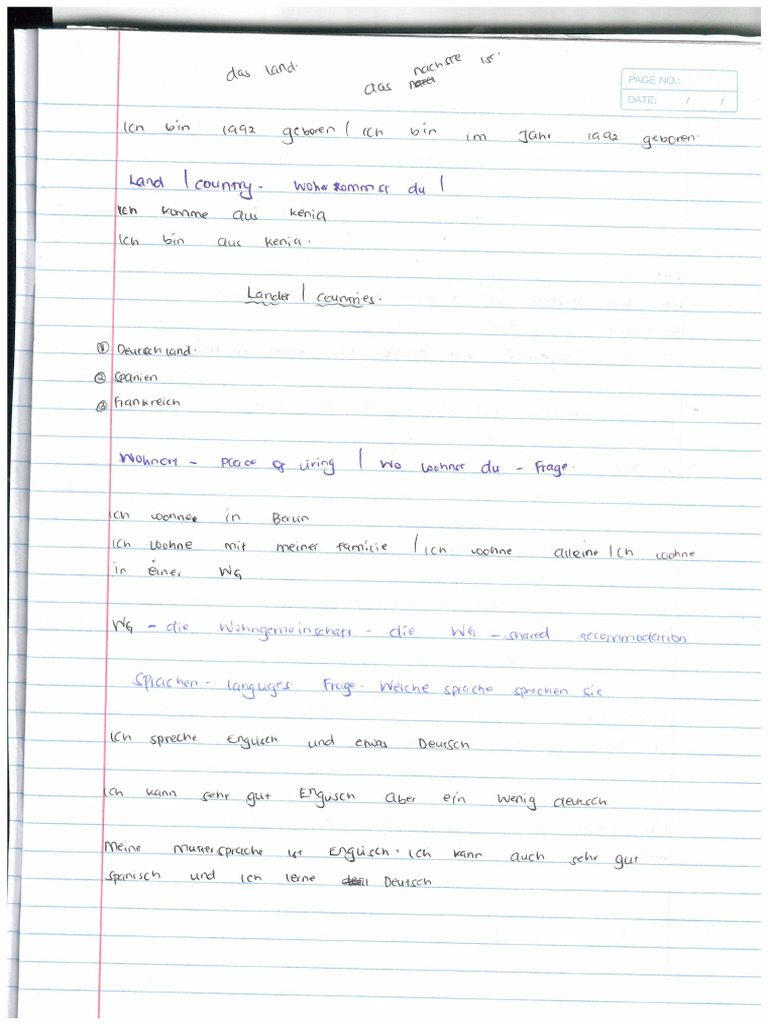 das Land.
das nächste ist.
PAGE NO.:
DATE: / /
Ich bin 1992 geboren | Ich bin im Jahr 1992 geboren.
Land | country - Woher kommst du |
Ich komme aus Kenia
Ich bin aus Kenia.
Lander | countries.
① Deutschland.
② Spanien
③ Frankreich
Wohnort - place of living | Wo wohnst du - Frage.
Ich wohnee in Berlin
Ich wohne mit meiner familie | ich wohne alleine | Ich wohne
in einer WG
WG - die Wohngemeinschaft - die WG - shared accommodation
Sprachen - languges Frage - Welche sprache sprechen sie
Ich spreche Englisch und etwas Deutsch
Ich kann sehr gut Englisch aber ein wenig deutsch
Meine Muttersprache ist Englisch. Ich kann auch sehr gut
spanisch und ich lerne Deutsch